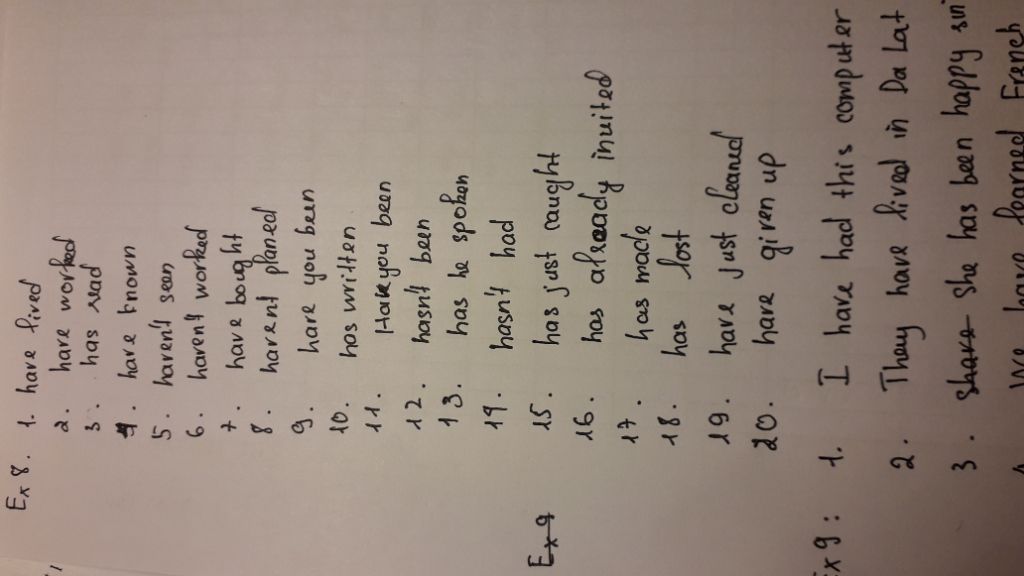 Ex 8. 1. have lived
2. have worked
3. has read
4. have known
5. haven't seen
6. haven't worked
7. have bought
8. havent planed
9. have you been
10. has written
11. Have you been
12. hasn't been
13. has he spoken
14. hasn't had
15. has just caught
16. has already invited
17. has made
18. has lost
19. have just cleaned
20. have given up
Ex 9: 1. I have had this computer
2. They have lived in Da Lat
3. She has been happy sin
We have learned French